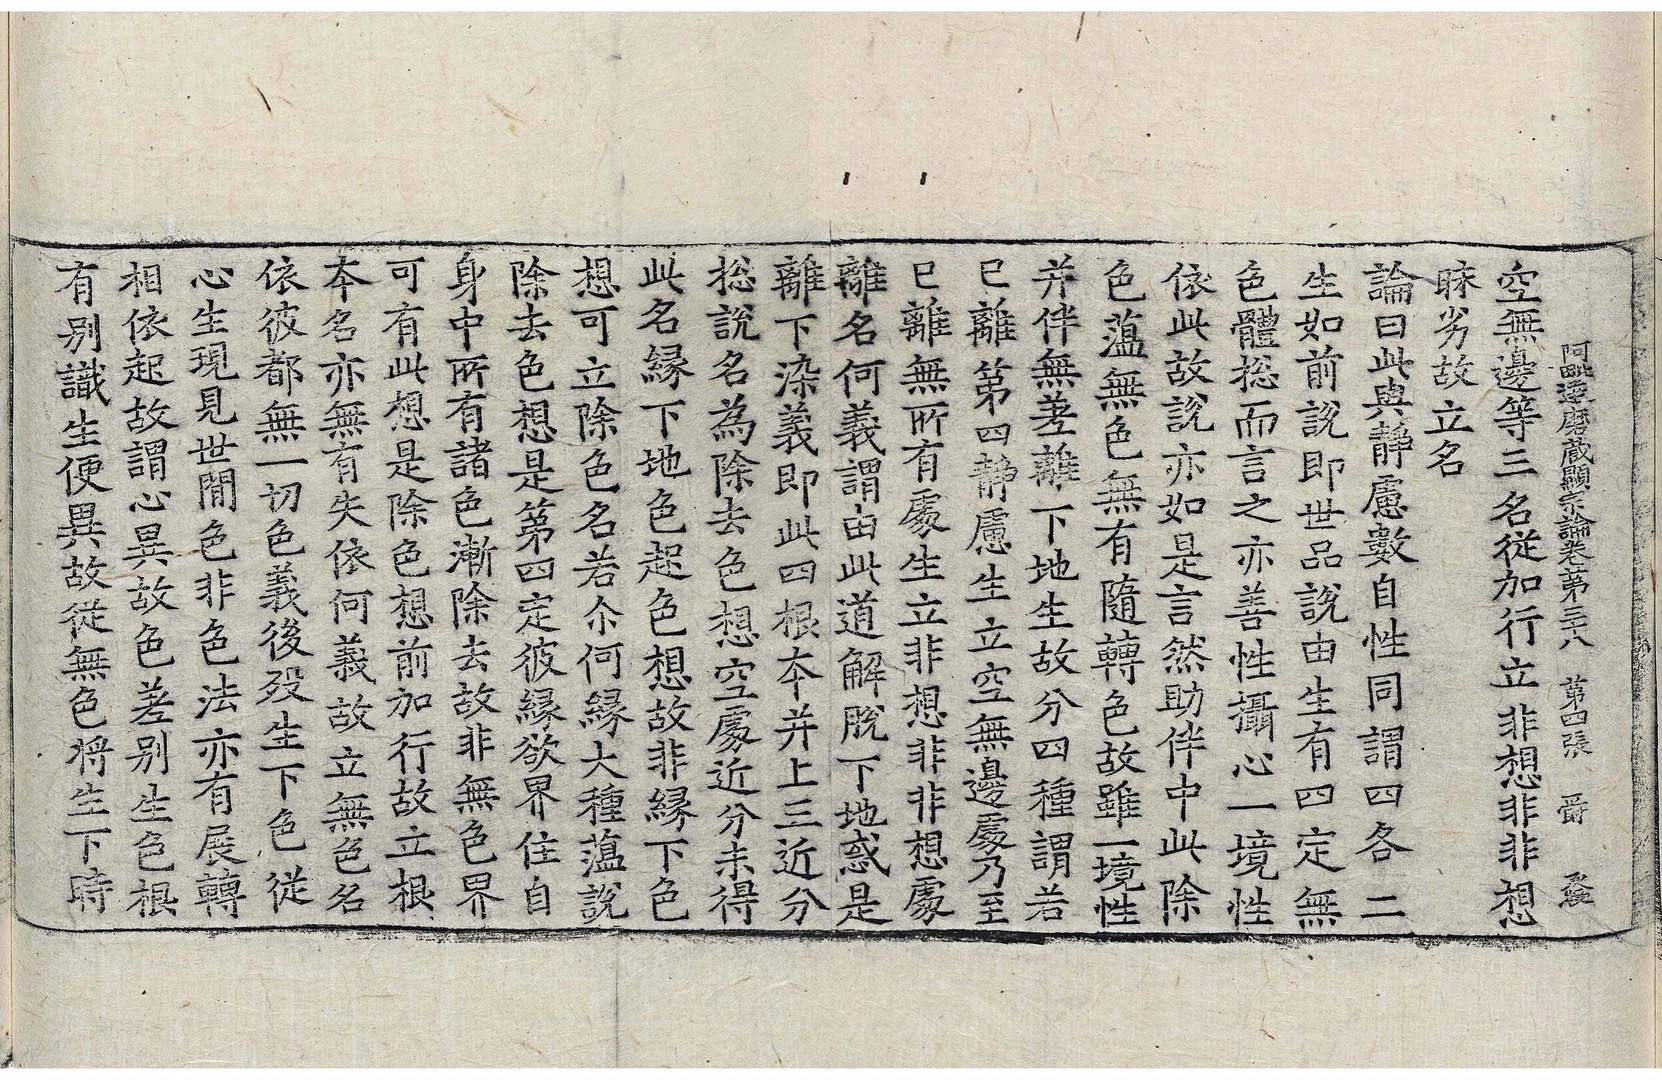 阿毗達磨藏顯宗論卷第三十八 第四張 爵
空無邊等三名從加行立非想非非想
昧劣故立名
論曰此與靜慮數自性同謂四各二
生如前說即世品說由生有四定無
色體捴而言之亦善性攝心一境性
依此故說亦如是言然助伴中此除
色蕰無色無有隨轉色故雖一境性
并伴無差離下地生故分四種謂若
已離第四靜慮生立空無邊處乃至
已離無所有處生立非想非非想處
離名何義謂由此道解脫下地惑是
離下染義即此四根本并上三近分
捴說名為除去色想空處近分未得
此名縁下地色起色想故非縁下色
想可立除色名若尒何縁大種蕰說
除去色想是第四定彼縁欲界住自
身中所有諸色漸除去故非無色界
可有此想是除色想前加行故立根
本名亦無有失依何義故立無色名
依彼都無一切色義後歿生下色從
心生現見世間色非色法亦有展轉
相依起故謂心異故色差別生色根
有别識生便異故從無色將生下時